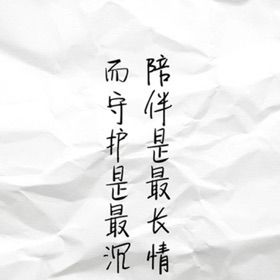 陪伴是最长情
而守护是最沉